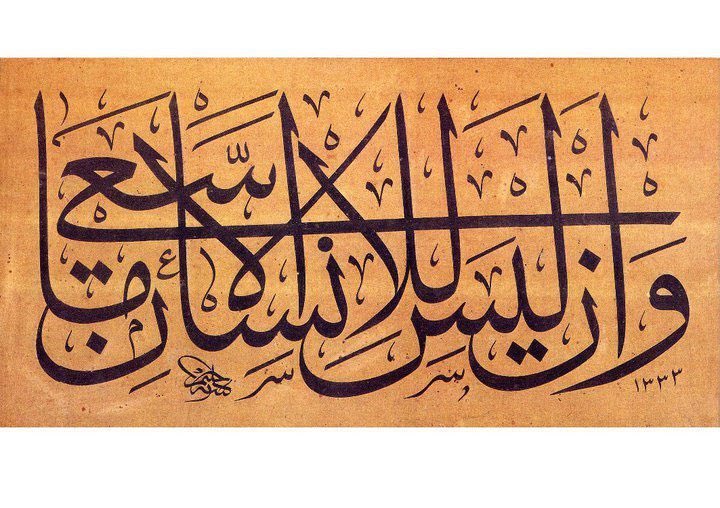 وَاَنْ لَيْسَ لِلْاِنْسَانِ اِلَّا مَا سَعٰى
١٣٣٣